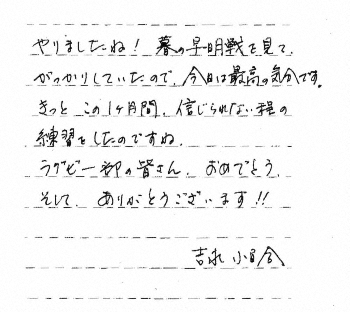 やりましたね！暮の早明戦を見て、
がっかりしていたので、今日は最高の気分です。
きっと この1ヶ月間、信じられない程の
練習をしたのですね。
ラグビー部の皆さん、おめでとう。
そして、ありがとうございます!!
吉永 小百合